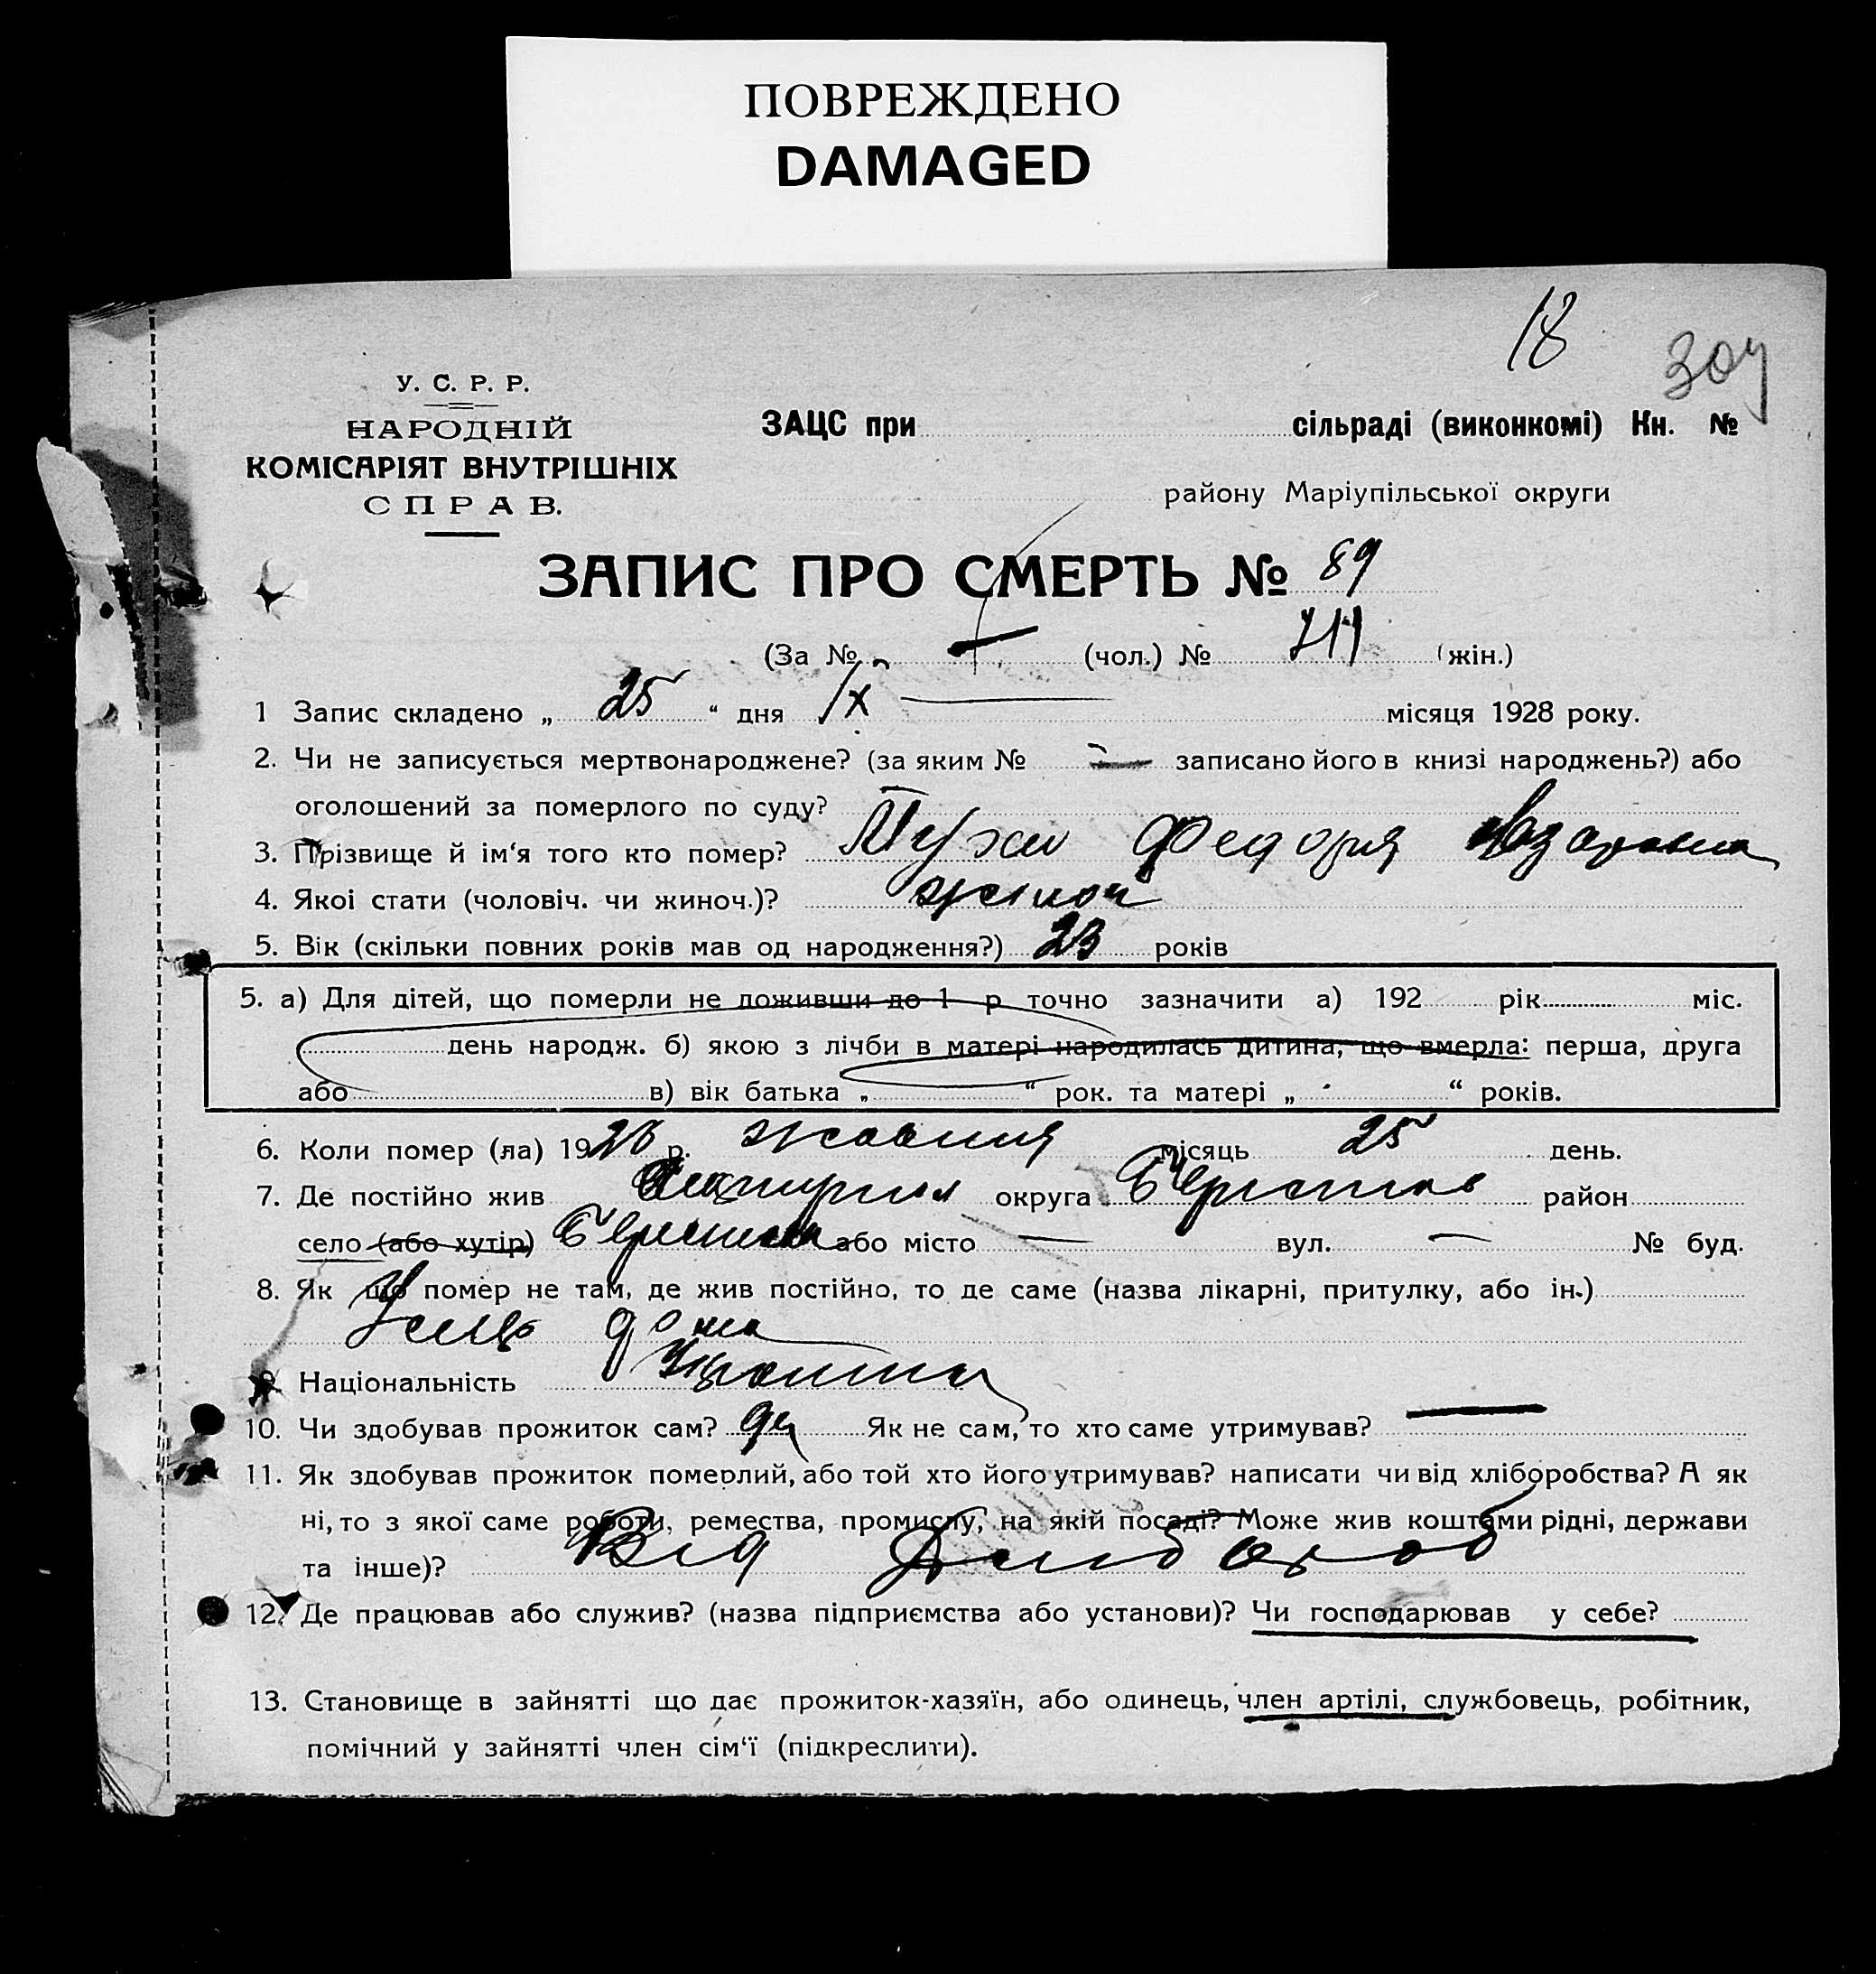 ПОВРЕЖДЕНО
DAMAGED
18
У. С. Р. Р.
НАРОДНІЙ
КОМІСАРІЯТ ВНУТРІШНІХ
СПРАВ.
ЗАЦС при сільраді (виконкомі) Кн. №
району Маріупільської округи
ЗАПИС ПРО СМЕРТЬ № 89
(За № (чол.) № (жін.)
1 Запис складено „ 25 “ дня IX місяця 1928 року.
2. Чи не записується мертвонароджене? (за яким № — записано його в книзі народжень?) або
оголошений за померлого по суду?
3. Прізвище й ім‘я того кто помер? Федория
4. Якої стати (чоловіч. чи жиноч.)? жіноч
5. Вік (скільки повних років мав од народження?) 23 років
5. а) Для дітей, що померли не доживши до 1 р точно зазначити а) 192 рік міс.
день народж. б) якою з лічби в матері народилась дитина, що вмерла: перша, друга
або в) вік батька „ “ рок. та матері „ “ років.
6. Коли помер (ла) 1928 р. жовтня місяць 25 день.
7. Де постійно жив округа район
село (або хутір) або місто — вул. — № буд.
8. Як що помер не там, де жив постійно, то де саме (назва лікарні, притулку, або ін.)
дома
9. Національність
10. Чи здобував прожиток сам? да Як не сам, то хто саме утримував? —
11. Як здобував прожиток померлий, або той хто його утримував? написати чи від хліборобства? А як
ні, то з якої саме роботи, ремества, промислу, на якій посаді? Може жив коштами рідні, держави
та інше)? Від
12. Де працював або служив? (назва підприємства або установи)? Чи господарював у себе?
13. Становище в зайнятті що дає прожиток-хазяїн, або одинець, член артілі, службовець, робітник,
помічний у зайнятті член сім‘ї (підкреслити).